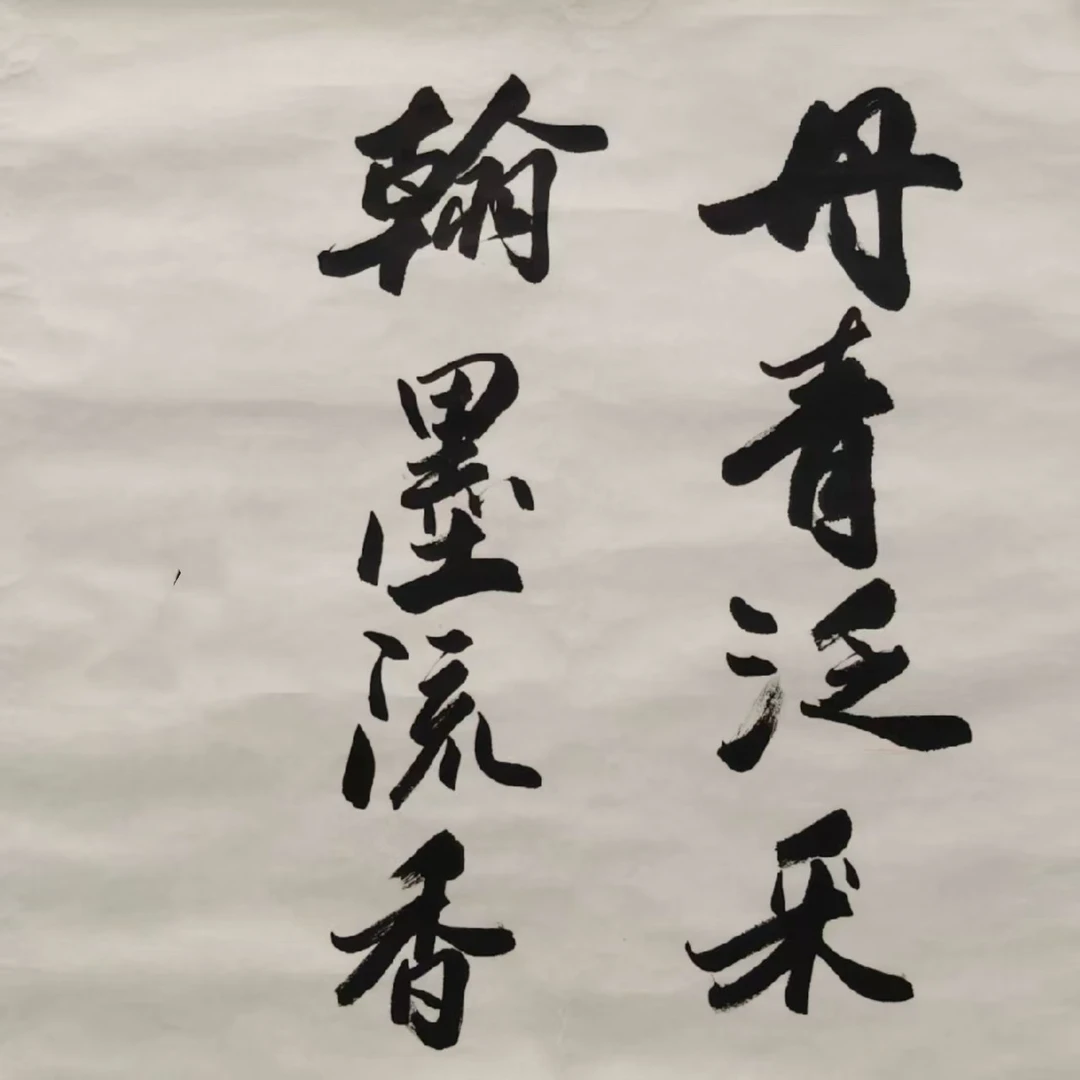 丹青泛采
翰墨流香